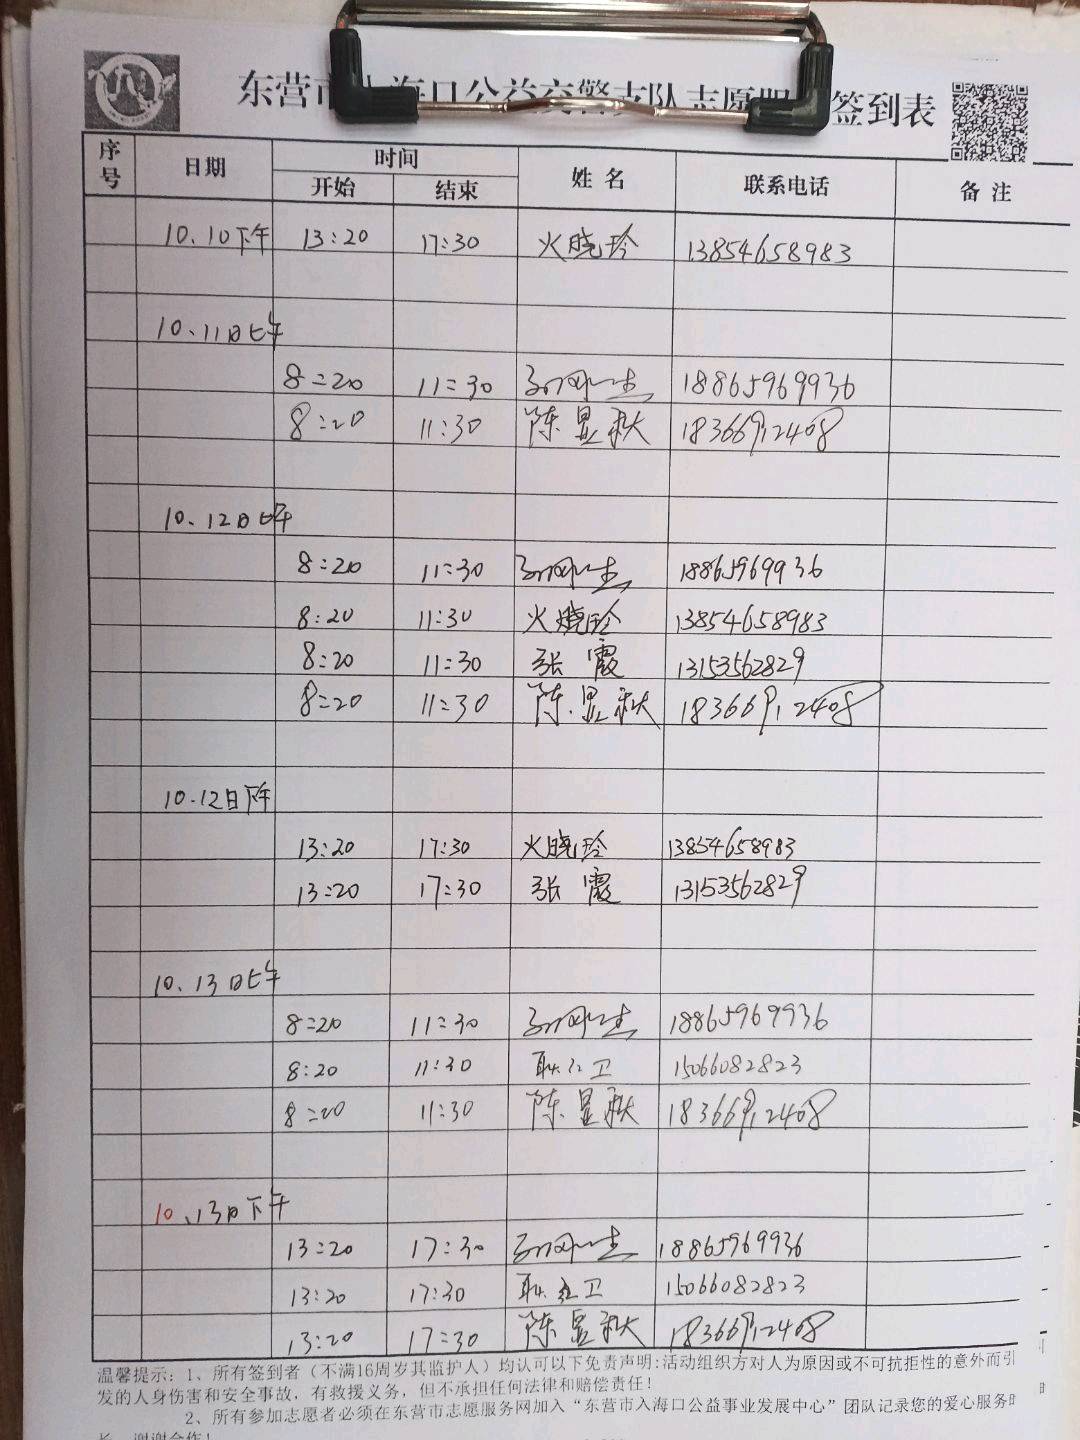 东营市入海口公益交警支队志愿服 签到表
序号 日期 时间 姓名 联系电话 备注
开始 结束
10.10下午 13:20 17:30 火晓玲 13854658983
10、11日上午
8:20 11:30 18865969936
8:20 11:30 陈昱秋 18366912408
10、12日上午
8:20 11:30 18865969936
8:20 11:30 火晓玲 13854658983
8:20 11:30 张霞 13153562829
8:20 11:30 陈昱秋 18366912408
10.12日下午
13:20 17:30 火晓玲 13854658983
13:20 17:30 张霞 13153562829
10、13日上午
8:20 11:30 18865969936
8:20 11:30 耿红卫 15066082823
8:20 11:30 陈昱秋 18366912408
10、13日下午
13:20 17:30 18865969936
13:20 17:30 耿红卫 15066082823
13:20 17:30 陈昱秋 18366912408
温馨提示：1、所有签到者（不满16周岁其监护人）均认可以下免责声明:活动组织方对人为原因或不可抗拒性的意外而引
发的人身伤害和安全事故，有救援义务，但不承担任何法律和赔偿责任！
2、所有参加志愿者必须在东营市志愿服务网加入“东营市入海口公益事业发展中心”团队记录您的爱心服务时
长，谢谢合作！